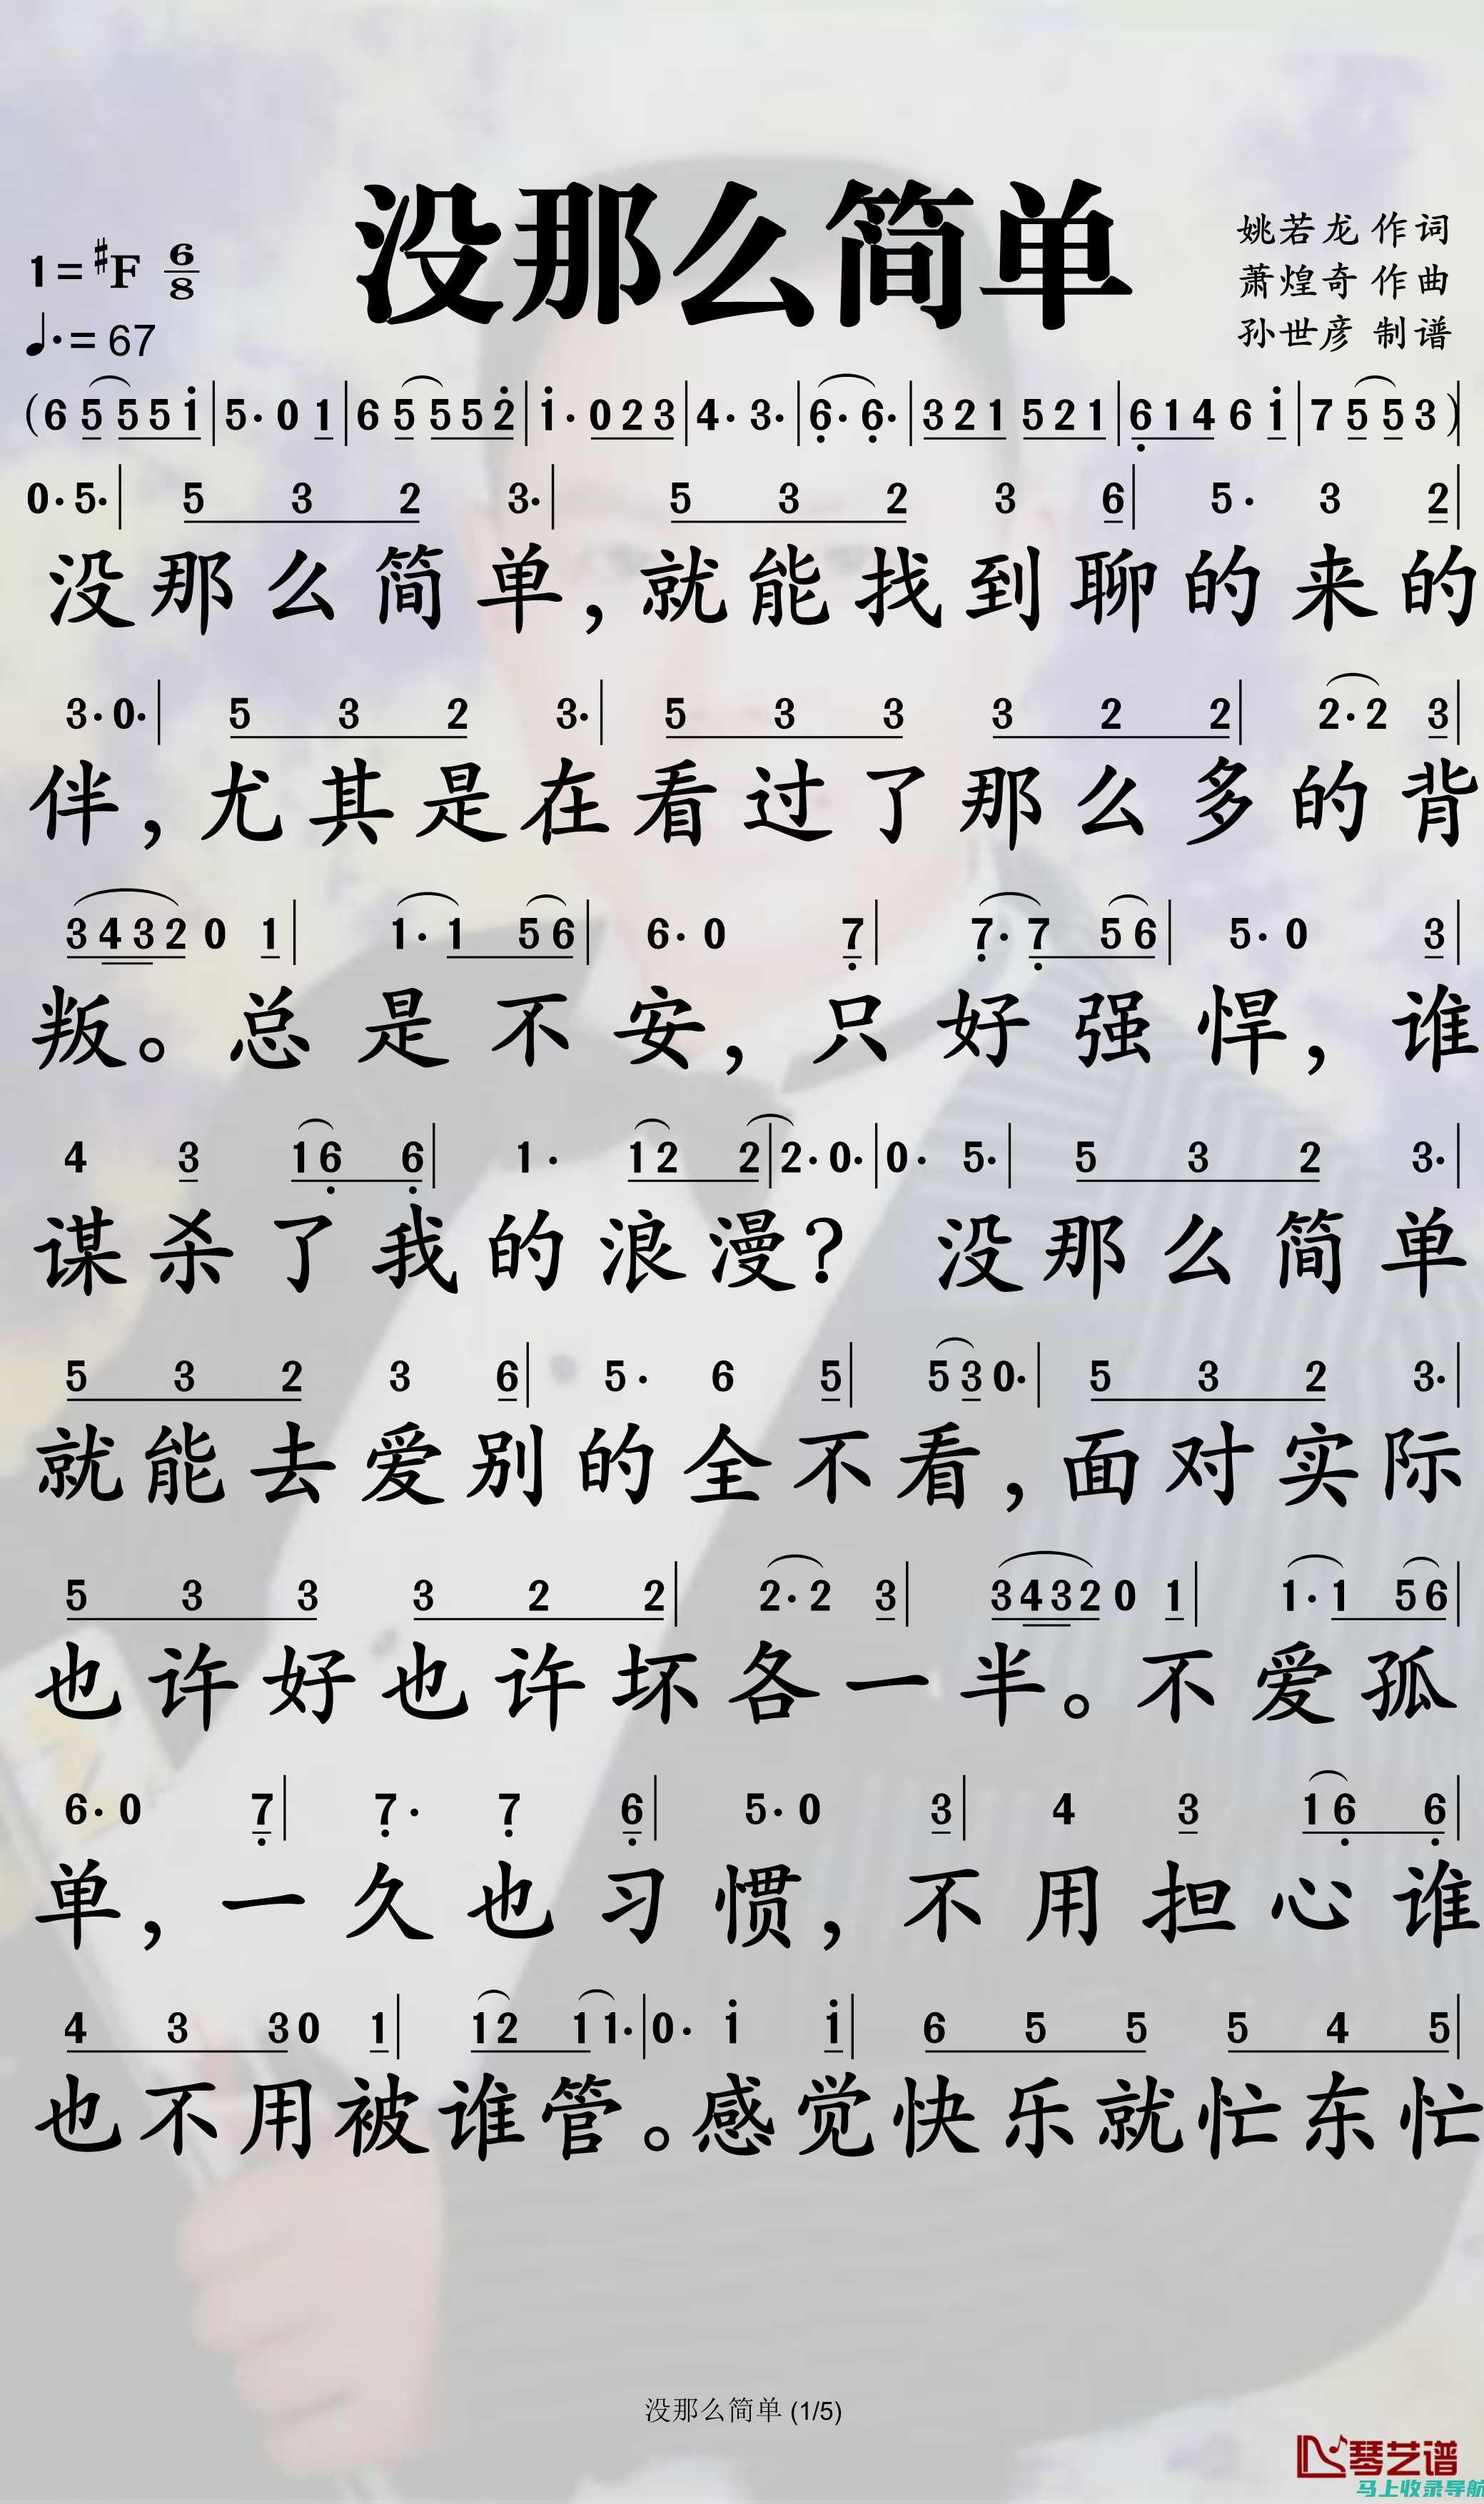 没那么简单
1=♯F 6/8
♩.=67
姚若龙 作词
萧煌奇 作曲
孙世彦 制谱
(6 5 5 5 i|5· 0 1|6 5 5 5 2̇|i· 0 2 3|4· 3·|6̣· 6̣·|3 2 1 5 2 1|6̣ 1 4 6 i|7 5 5 3)|
0· 5·|5 3 2 3·|5 3 2 3 6|5· 3 2|
没那么简单,就能找到聊的来的
3· 0·|5 3 2 3·|5 3 3 3 2 2|2· 2 3|
伴,尤其是在看过了那么多的背
3 4 3 2 0 1|1· 1 5 6|6· 0 7̣|7̣· 7̣ 5 6|5· 0 3|
叛。总是不安,只好强悍,谁
4 3 1 6̣ 6̣|1· 1 2 2|2· 0·|0· 5·|5 3 2 3·|
谋杀了我的浪漫? 没那么简单
5 3 2 3 6|5· 6 5|5 3 0·|5 3 2 3·|
就能去爱别的全不看,面对实际
5 3 3 3 2 2|2· 2 3|3 4 3 2 0 1|1· 1 5 6|
也许好也许坏各一半。不爱孤
6· 0 7̣|7̣· 7̣ 6̣|5· 0 3|4 3 1 6̣ 6̣|
单,一久也习惯,不用担心谁
4 3 3 0 1|1 2 1 1·|0· i i|6 5 5 5 4 5|
也不用被谁管。感觉快乐就忙东忙
没那么简单 (1/5)
琴艺谱
马上收录导航